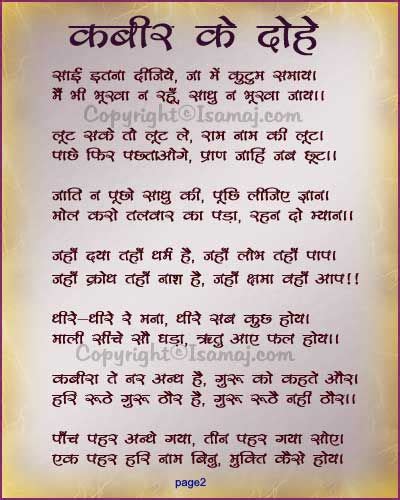 कबीर के दोहे
साईं इतना दीजिये, जा में कुटुम समाय।
मैं भी भूखा न रहूँ, साधु न भूखा जाय।।
Copyright©Isamaj.com
लूट सके तो लूट ले, राम नाम की लूट।
पाछे फिर पछताओगे, प्राण जाहिं जब छूट।।
जाति न पूछो साधु की, पूछि लीजिए ज्ञान।
मोल करो तलवार का पड़ा, रहन दो म्यान।।
जहाँ दया तहाँ धर्म है, जहाँ लोभ तहाँ पाप।
जहाँ क्रोध तहाँ नाश है, जहाँ क्षमा वहाँ आप!!
धीरे-धीरे रे मना, धीरे सब कुछ होय।
माली सींचे सौ घड़ा, ऋतु आए फल होय।।
Copyright©Isamaj.com
कबीरा ते नर अन्ध है, गुरू को कहते और।
हरि रूठे गुरू ठौर है, गुरू रूठै नहीं ठौर।।
पाँच पहर अन्धे गया, तीन पहर गया सोए।
एक पहर हरि नाम बिनु, मुक्ति कैसे होय।
page2